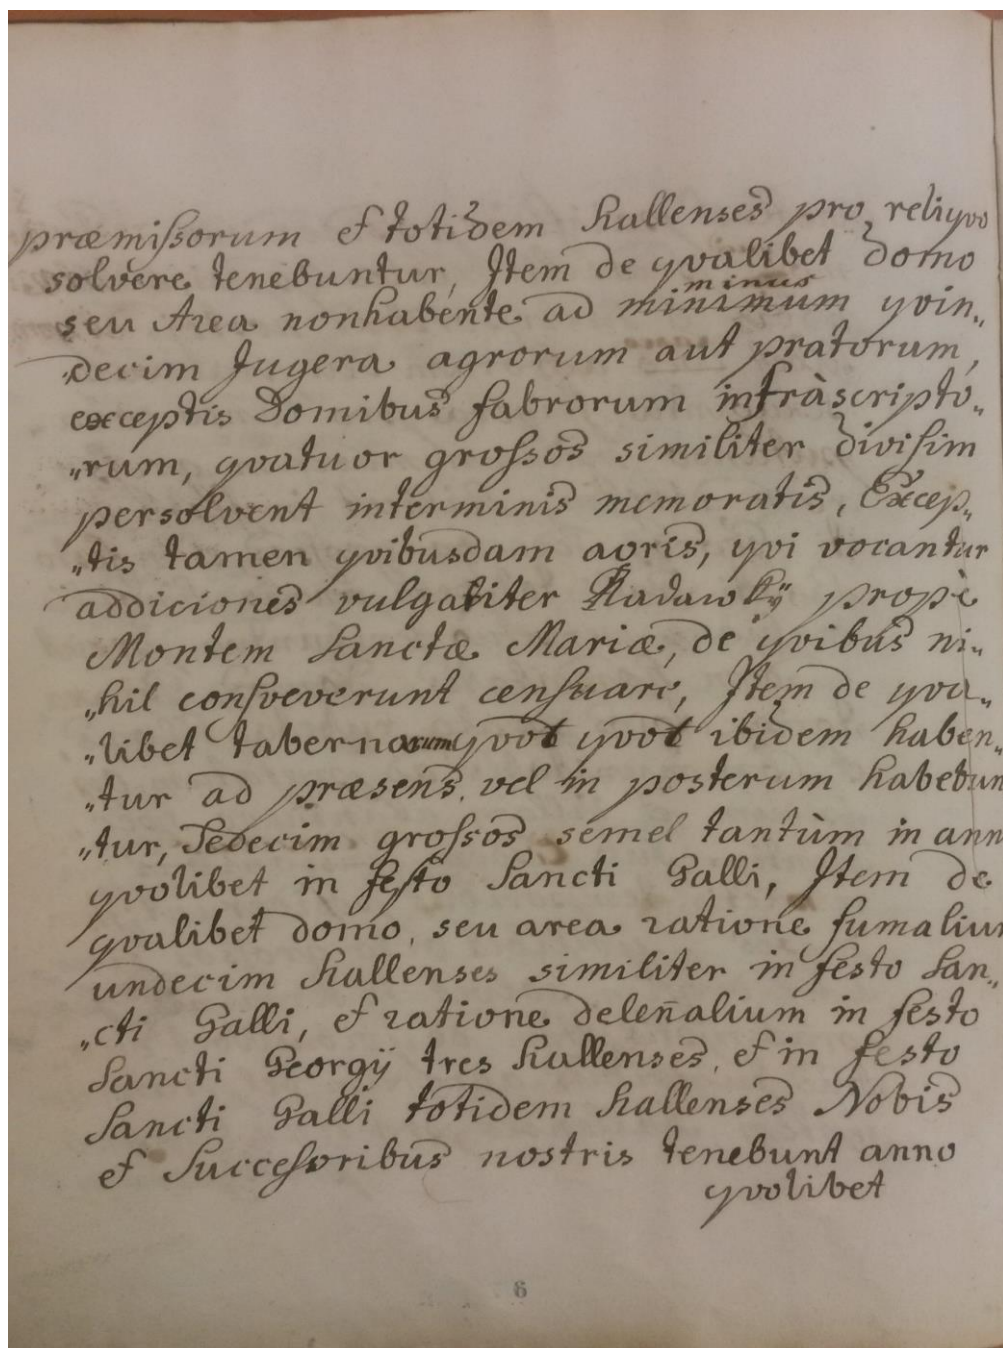 præmissorum et totidem hallenses pro reliqvo
solvere tenebuntur, Item de qvalibet domo
minus
seu Area nonhabente ad minimum qvin„
decim Jugera agrorum aut pratorum,
exceptis Domibus fabrorum infràscripto„
„rum, qvatuor grossos similiter divisim
persolvent interminis memoratis, Excep„
„tis tamen qvibusdam agris, qvi vocantur
addiciones vulgariter Radawkÿ propè
Montem Sanctæ Mariæ, de qvibus ni„
„hil consveverunt censuare, Item de qva„
„libet tabernarum qvot qvot ibidem haben„
„tur ad præsens, vel in posterum habebun
„tur, Sedecim grossos semel tantùm in ann
qvolibet in festo Sancti Galli, Item de
qvalibet domo, seu area ratione fumaliu
undecim hallenses similiter in festo San„
„cti Galli, et ratione deleñalium in festo
Sancti Georgÿ tres hallenses, et in festo
Sancti Galli totidem hallenses Nobis
et Successoribus nostris tenebunt anno
qvolibet
6